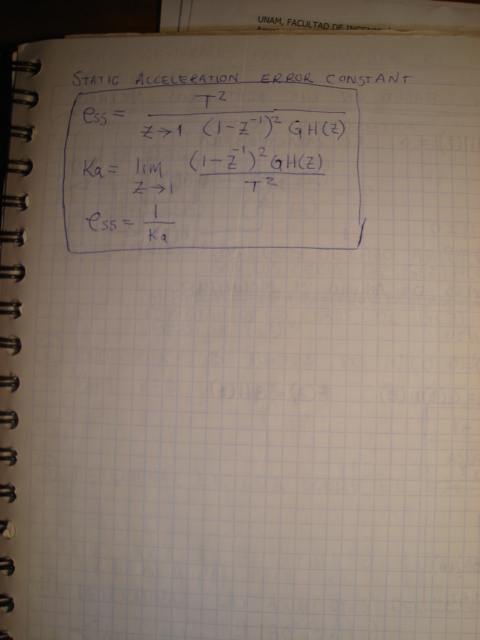 UNAM, FACULTAD DE
STATIC ACCELERATION ERROR CONSTANT
ess = T² / z→1 (1-z⁻¹)² GH(z)
Ka = lim z→1 (1-z⁻¹)² GH(z) / T²
ess = 1 / Ka